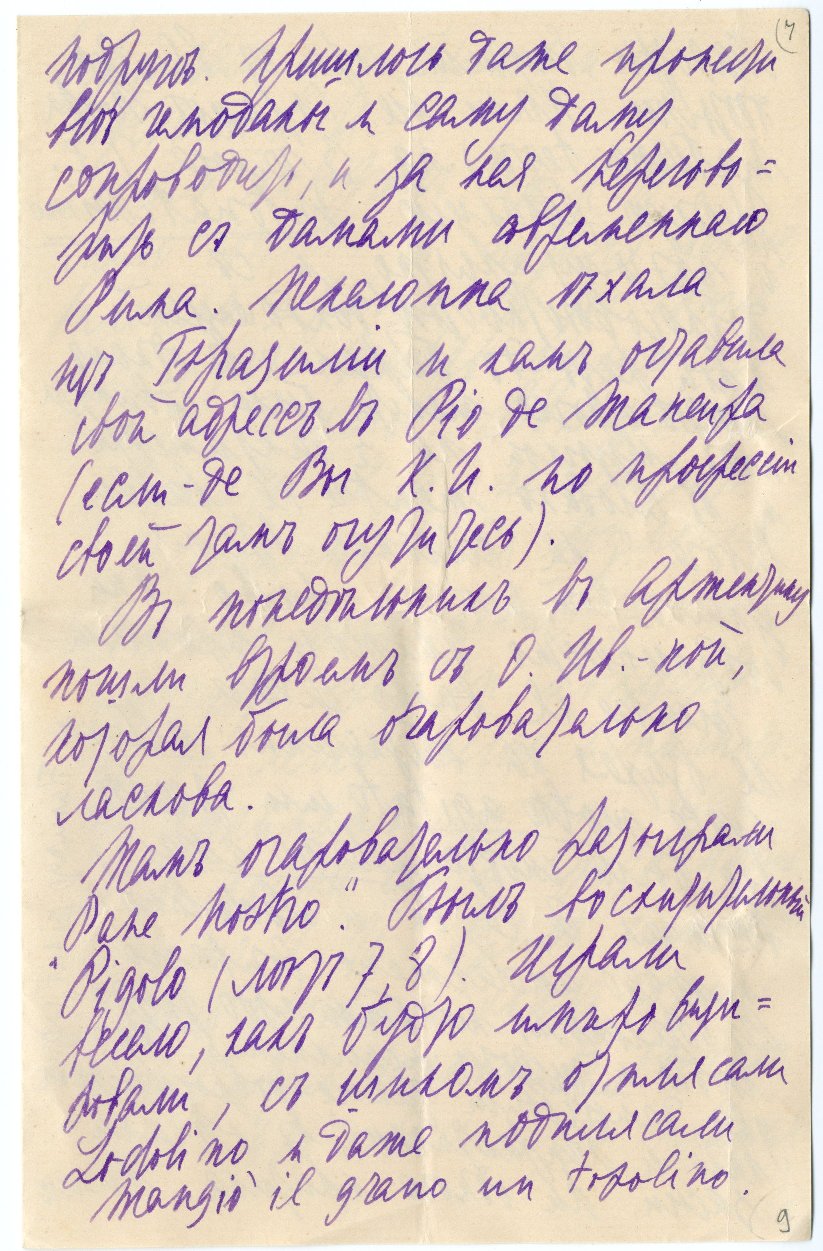 7
подругъ. Пришлось даже пронести
ихъ чемоданы и саму даму
сопроводить, и за нея перегово=
рить съ дамами современнаго
Рима. Пенелопка ѣхала
изъ Бразиліи и намъ оставила
свой адрессъ въ Ріо де Жанейра
(если-де Вы К.И. по профессіи
своей тамъ очутитесь).
Въ понедѣльникъ въ Аржентину
пошли втроемъ съ О. Ив.-ной,
которая была очаровательно
ласкова.
Тамъ очаровательно разыграли
"Pane Nostro". Былъ восхитительный
Pigolo (лѣтъ 7, 8). Играли
весело, какъ будто импрови=
зовали, съ шикомъ отплясали
Lodolino и даже подплясали
mangiò il grano un topolino.
9